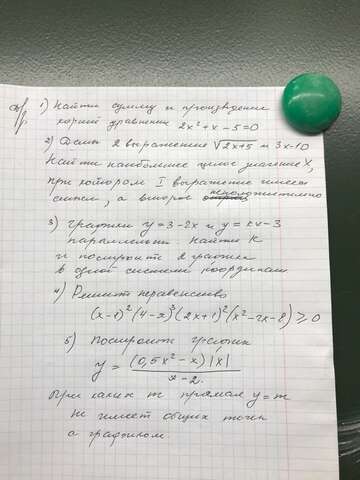 1) Найти сумму и произведение
корней уравнения 2x² + x - 5 = 0
2) Даны 2 выражения √2x+5 и 3x-10
Найти наибольшее целое значение X,
при котором I выражение имеет
смысл, а второе неположительно
3) Графики y = 3 - 2x и y = kx - 3
параллельны Найти k
и построить 2 графика
в одной системе координат
4) Решить неравенство
(x-1)²(4-x)³(2x+1)²(x²-2x-8) ≥ 0
5) Построить график
y = (0,5x² - x)|x|
x - 2.
При каких m прямая y = m
не имеет общих точек
с графиком